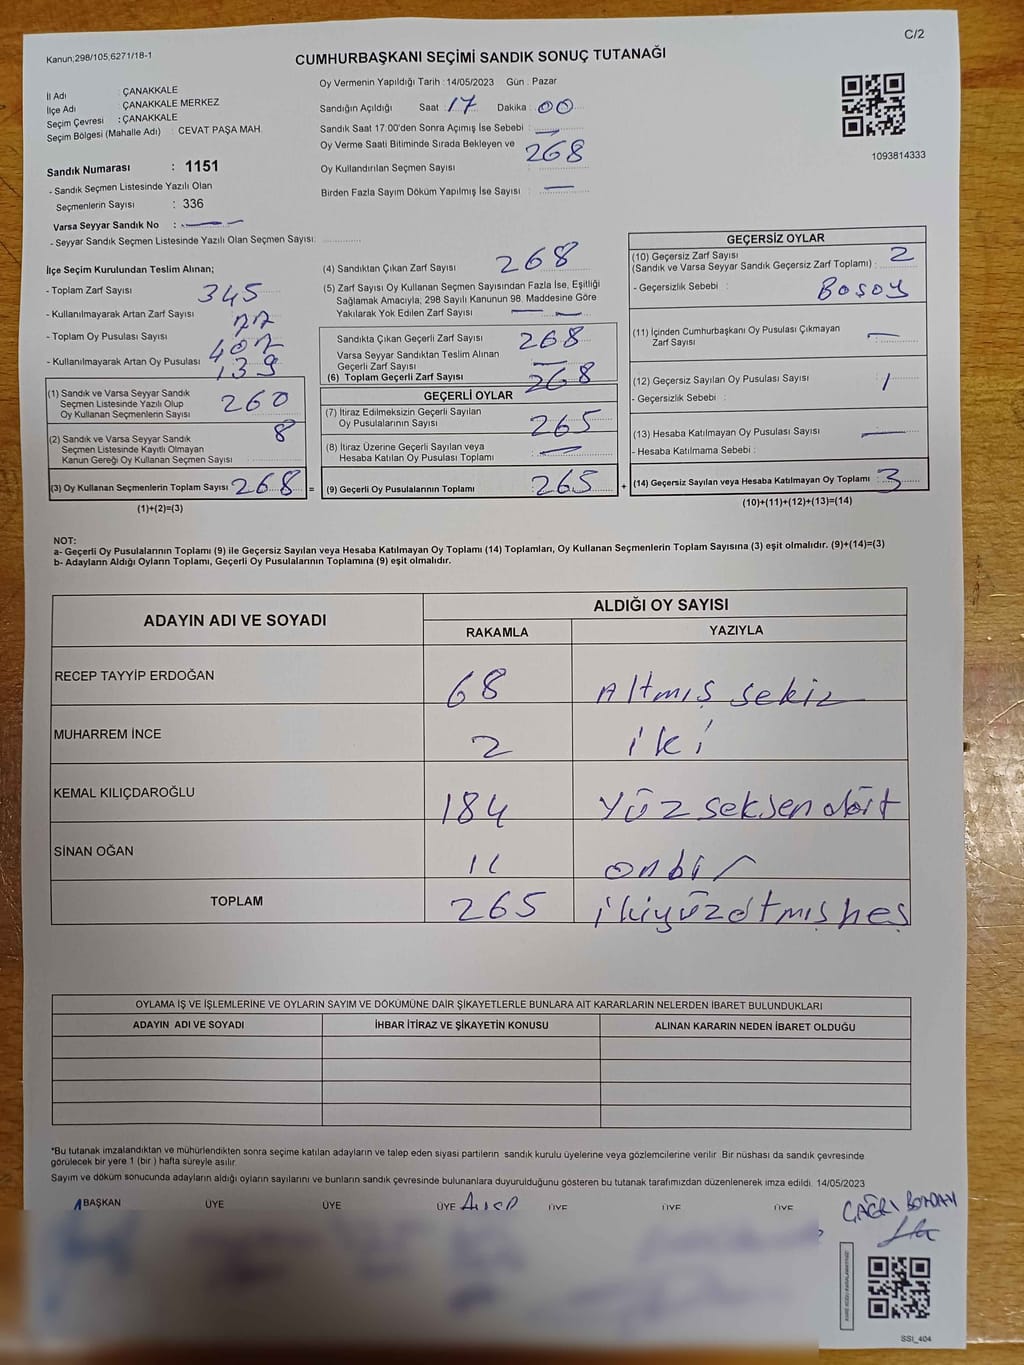 C/2
Kanun;298/105;6271/18-1
CUMHURBAŞKANI SEÇİMİ SANDIK SONUÇ TUTANAĞI
İl Adı : ÇANAKKALE
İlçe Adı : ÇANAKKALE MERKEZ
Seçim Çevresi : ÇANAKKALE
Seçim Bölgesi (Mahalle Adı) : CEVAT PAŞA MAH.
Sandık Numarası : 1151
- Sandık Seçmen Listesinde Yazılı Olan
Seçmenlerin Sayısı : 336
Varsa Seyyar Sandık No :
- Seyyar Sandık Seçmen Listesinde Yazılı Olan Seçmen Sayısı:
Oy Vermenin Yapıldığı Tarih : 14/05/2023 Gün : Pazar
Sandığın Açıldığı Saat : 17 Dakika : 00
Sandık Saat 17:00'den Sonra Açımış İse Sebebi :
Oy Verme Saati Bitiminde Sırada Bekleyen ve
Oy Kullandırılan Seçmen Sayısı : 268
Birden Fazla Sayım Döküm Yapılmış İse Sayısı :
1093814333
İlçe Seçim Kurulundan Teslim Alınan;
- Toplam Zarf Sayısı 345
- Kullanılmayarak Artan Zarf Sayısı 77
- Toplam Oy Pusulası Sayısı 407
- Kullanılmayarak Artan Oy Pusulası 139
(1) Sandık ve Varsa Seyyar Sandık
Seçmen Listesinde Yazılı Olup
Oy Kullanan Seçmenlerin Sayısı 260
(2) Sandık ve Varsa Seyyar Sandık
Seçmen Listesinde Kayıtlı Olmayan
Kanun Gereği Oy Kullanan Seçmen Sayısı : 8
(3) Oy Kullanan Seçmenlerin Toplam Sayısı : 268 =
(1)+(2)=(3)
(4) Sandıktan Çıkan Zarf Sayısı 268
(5) Zarf Sayısı Oy Kullanan Seçmen Sayısından Fazla İse, Eşitliği
Sağlamak Amacıyla, 298 Sayılı Kanunun 98. Maddesine Göre
Yakılarak Yok Edilen Zarf Sayısı :
Sandıkta Çıkan Geçerli Zarf Sayısı 268
Varsa Seyyar Sandıktan Teslim Alınan
Geçerli Zarf Sayısı :
(6) Toplam Geçerli Zarf Sayısı 268
GEÇERLİ OYLAR
(7) İtiraz Edilmeksizin Geçerli Sayılan
Oy Pusulalarının Sayısı : 265
(8) İtiraz Üzerine Geçerli Sayılan veya
Hesaba Katılan Oy Pusulası Toplamı :
(9) Geçerli Oy Pusulalarının Toplamı : 265 +
GEÇERSİZ OYLAR
(10) Geçersiz Zarf Sayısı
(Sandık ve Varsa Seyyar Sandık Geçersiz Zarf Toplamı) : 2
- Geçersizlik Sebebi : BOŞOY
(11) İçinden Cumhurbaşkanı Oy Pusulası Çıkmayan
Zarf Sayısı :
(12) Geçersiz Sayılan Oy Pusulası Sayısı : 1
- Geçersizlik Sebebi :
(13) Hesaba Katılmayan Oy Pusulası Sayısı :
- Hesaba Katılmama Sebebi :
(14) Geçersiz Sayılan veya Hesaba Katılmayan Oy Toplamı : 3
(10)+(11)+(12)+(13)=(14)
NOT:
a- Geçerli Oy Pusulalarının Toplamı (9) ile Geçersiz Sayılan veya Hesaba Katılmayan Oy Toplamı (14) Toplamları, Oy Kullanan Seçmenlerin Toplam Sayısına (3) eşit olmalıdır. (9)+(14)=(3)
b- Adayların Aldığı Oyların Toplamı, Geçerli Oy Pusulalarının Toplamına (9) eşit olmalıdır.
ADAYIN ADI VE SOYADI
ALDIĞI OY SAYISI
RAKAMLA YAZIYLA
RECEP TAYYİP ERDOĞAN 68 Altmış sekiz
MUHARREM İNCE 2 iki
KEMAL KILIÇDAROĞLU 184 Yüz seksen dört
SİNAN OĞAN 11 onbir
TOPLAM 265 ikiyüzatmışbeş
OYLAMA İŞ VE İŞLEMLERİNE VE OYLARIN SAYIM VE DÖKÜMÜNE DAİR ŞİKAYETLERLE BUNLARA AİT KARARLARIN NELERDEN İBARET BULUNDUKLARI
ADAYIN ADI VE SOYADI İHBAR İTİRAZ VE ŞİKAYETİN KONUSU ALINAN KARARIN NEDEN İBARET OLDUĞU
*Bu tutanak imzalandıktan ve mühürlendikten sonra seçime katılan adayların ve talep eden siyasi partilerin sandık kurulu üyelerine veya gözlemcilerine verilir. Bir nüshası da sandık çevresinde
görülecek bir yere 1 (bir ) hafta süreyle asılır.
Sayım ve döküm sonucunda adayların aldığı oyların sayılarını ve bunların sandık çevresinde bulunanlara duyurulduğunu gösteren bu tutanak tarafımızdan düzenlenerek imza edildi. 14/05/2023
BAŞKAN ÜYE ÜYE ÜYE ÜYE ÜYE ÜYE
ÇAĞRI
SSI_404